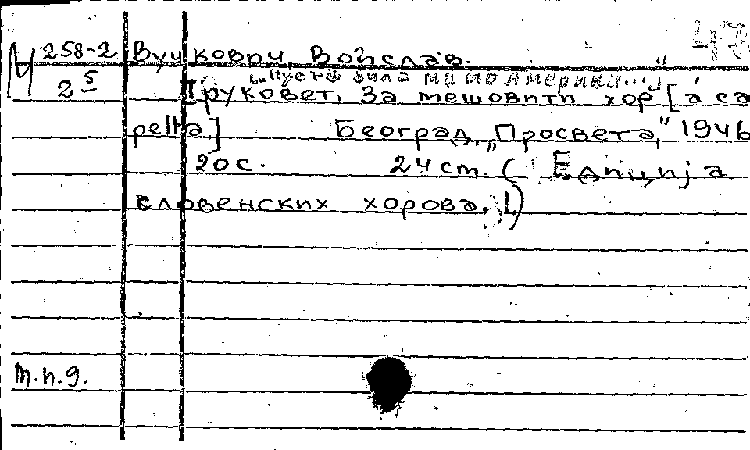 М 258-2 Вучковић, Војслав.
47
2 5
„Пусто било ми
Руковет, За мешовити хор [a ca
pella.] Београд, „Просвета," 1946
20 с. 24 cm. (Едиција
словенских хорова, 1)
m.n.g.